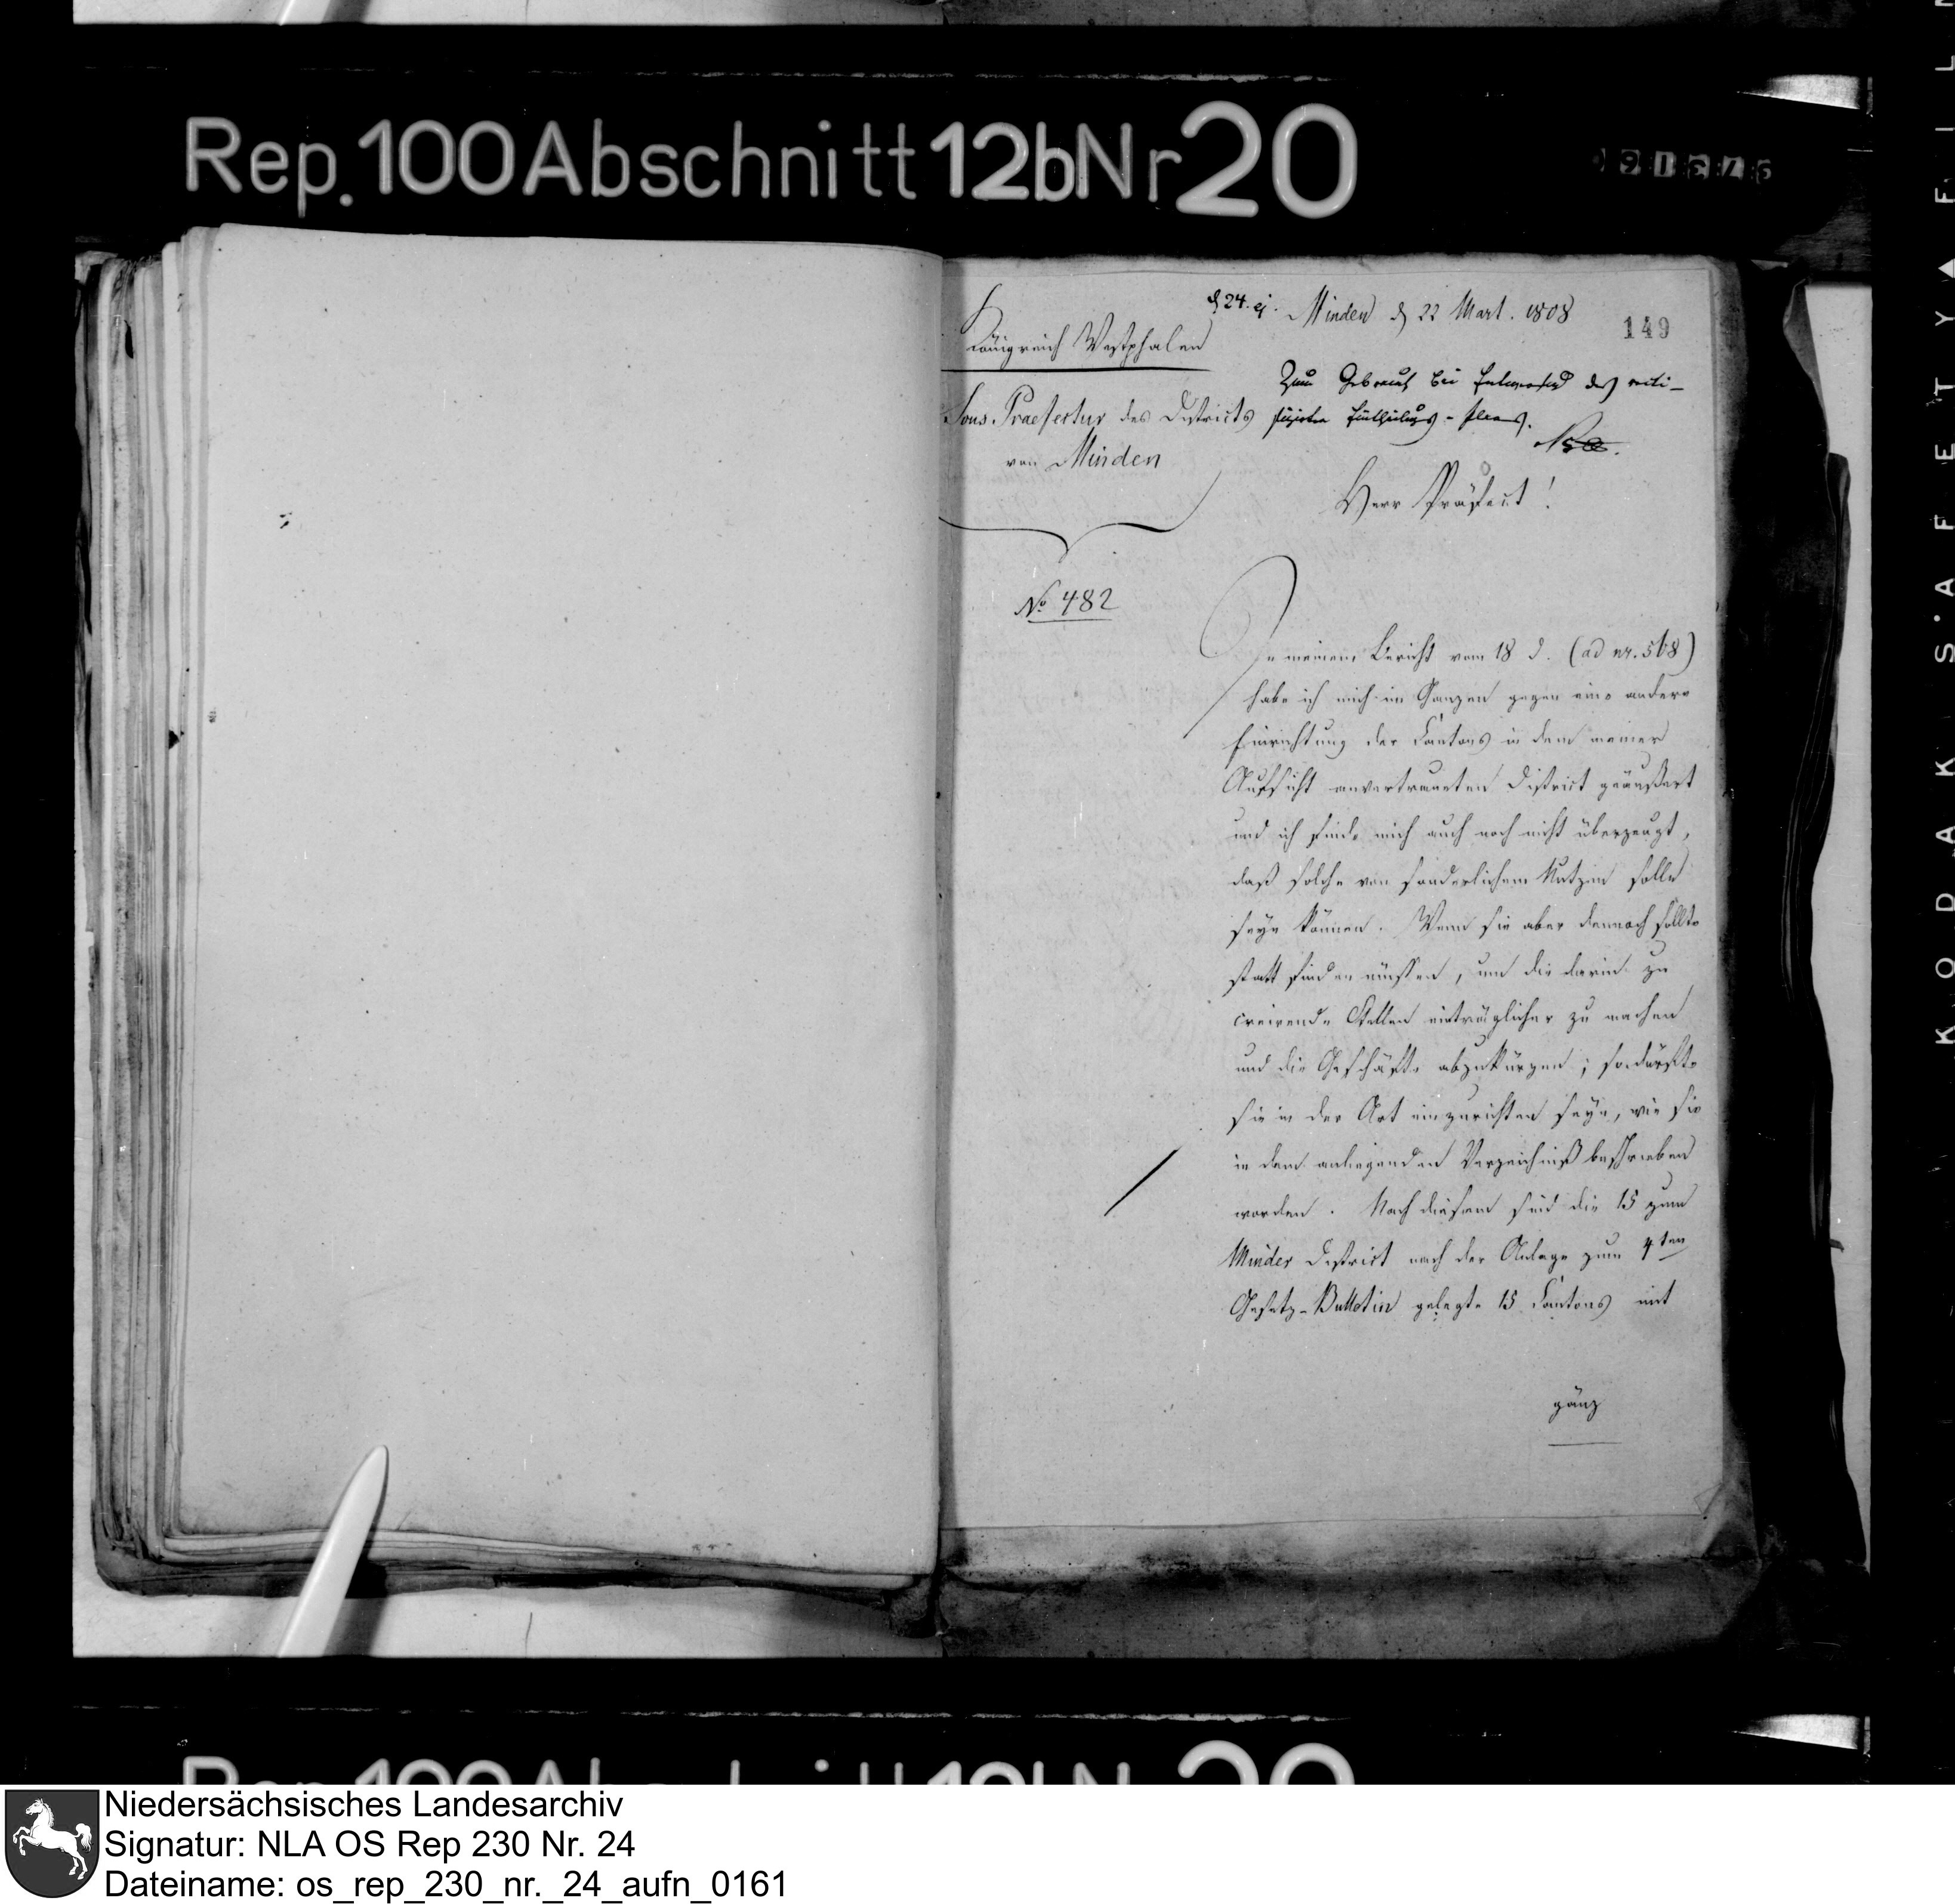 Rep. 100 Abschnitt 12b Nr 20
Königreich Westphalen
Sous-Praefectur des Districts
von Minden
No 482
d 24. ej.
Minden d 22 Mart. 1808
149
Zum Gebrauch bei des recti-
ficirten Eintheilungs-Planes.
Herr Präfect!
In meinem Bericht vom 18 d. (ad nr. 568)
habe ich mich im Ganzen gegen eine andere
Einrichtung der Cantons in dem meiner
Aufsicht anvertraueten District geäußert
und ich finde mich auch noch nicht überzeugt,
daß solche von sonderlichem Nutzen solle
seyn können. Wenn sie aber dennoch sollte
statt finden müssen, um die darin zu
creirende Stellen einträglicher zu machen
und die Geschäfte abzukürzen; so dürfte
sie in der Art einzurichten seyn, wie sie
in dem anliegenden Verzeichniß beschrieben
worden. Nach diesem sind die 15 zum
Minder District nach der Anlage zum 4ten
Gesetz-Bulletin gelegte 15 Cantons mit
gänz
KODAK SAFETY FILM
Niedersächsisches Landesarchiv
Signatur: NLA OS Rep 230 Nr. 24
Dateiname: os_rep_230_nr._24_aufn_0161